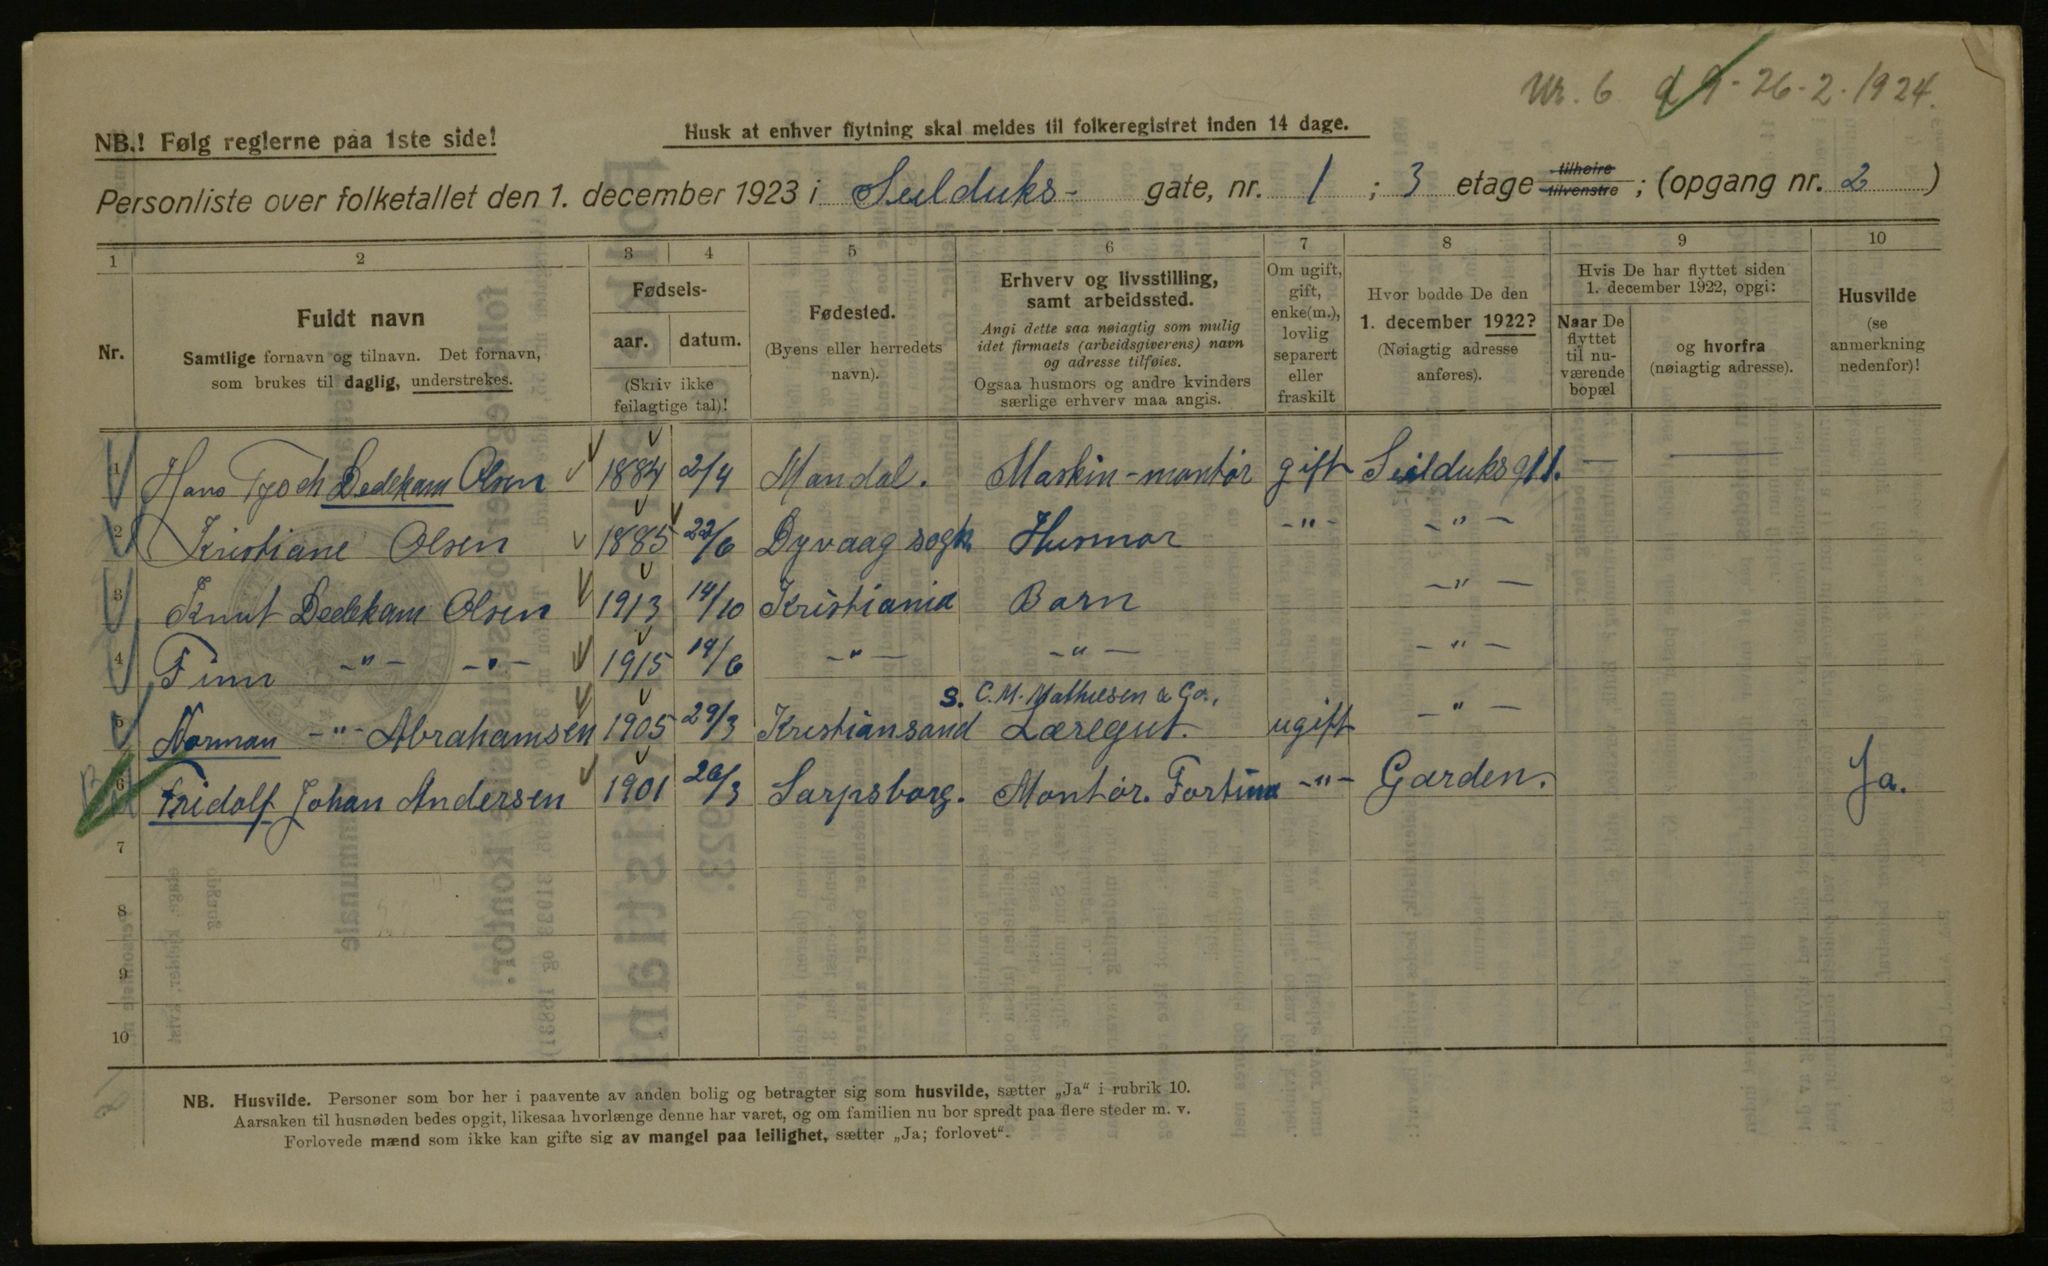 Nr. 6 26-2-1924.
NB.! Følg reglerne paa 1ste side!
Husk at enhver flytning skal meldes til folkeregistret inden 14 dage.
Personliste over folketallet den 1. december 1923 i Seilduks- gate, nr. 1 ; 3 etage tilhøire tilvenstre ; (opgang nr. 2 )
1 2 3 4 5 6 7 8 9 10
Nr.
Fuldt navn
Samtlige fornavn og tilnavn. Det fornavn,
som brukes til daglig, understrekes.
Fødsels-
aar. datum.
(Skriv ikke
feilagtige tal)!
Fødested.
(Byens eller herredets
navn).
Erhverv og livsstilling,
samt arbeidssted.
Angi dette saa nøiagtig som mulig
idet firmaets (arbeidsgiverens) navn
og adresse tilføies.
Ogsaa husmors og andre kvinders
særlige erhverv maa angis.
Om ugift,
gift,
enke(m.),
lovlig
separert
eller
fraskilt
Hvor bodde De den
1. december 1922?
(Nøiagtig adresse
anføres).
Hvis De har flyttet siden
1. december 1922, opgi:
Naar De
flyttet
til nu-
værende
bopæl
og hvorfra
(nøiagtig adresse).
Husvilde
(se
anmerkning
nedenfor)!
1 Hans Dedekam Olsen 1884 2/4 Mandal. Maskin-montør gift Seilduksgt 1. — —
2 Kristiane Olsen 1885 22/6 Dyvaag sogn Husmor -"- -"-
3 Knut Dedekam Olsen 1913 14/10 Kristiania Barn -"-
4 Finn -"- -"- 1915 19/6 -"- -"- -"-
S. C. M. Mathiesen & Co.,
5 Norman -"- Abrahamsen 1905 29/3 Kristiansand Læregut. ugift -"-
6 Fridolf Johan Andersen 1901 26/3 Sarpsborg. Montør. Fortuna -"- Garden. Ja.
7
8
9
10
NB. Husvilde. Personer som bor her i paavente av anden bolig og betragter sig som husvilde, sætter „Ja" i rubrik 10.
Aarsaken til husnøden bedes opgit, likesaa hvorlænge denne har varet, og om familien nu bor spredt paa flere steder m. v.
Forlovede mænd som ikke kan gifte sig av mangel paa leilighet, sætter „Ja; forlovet".